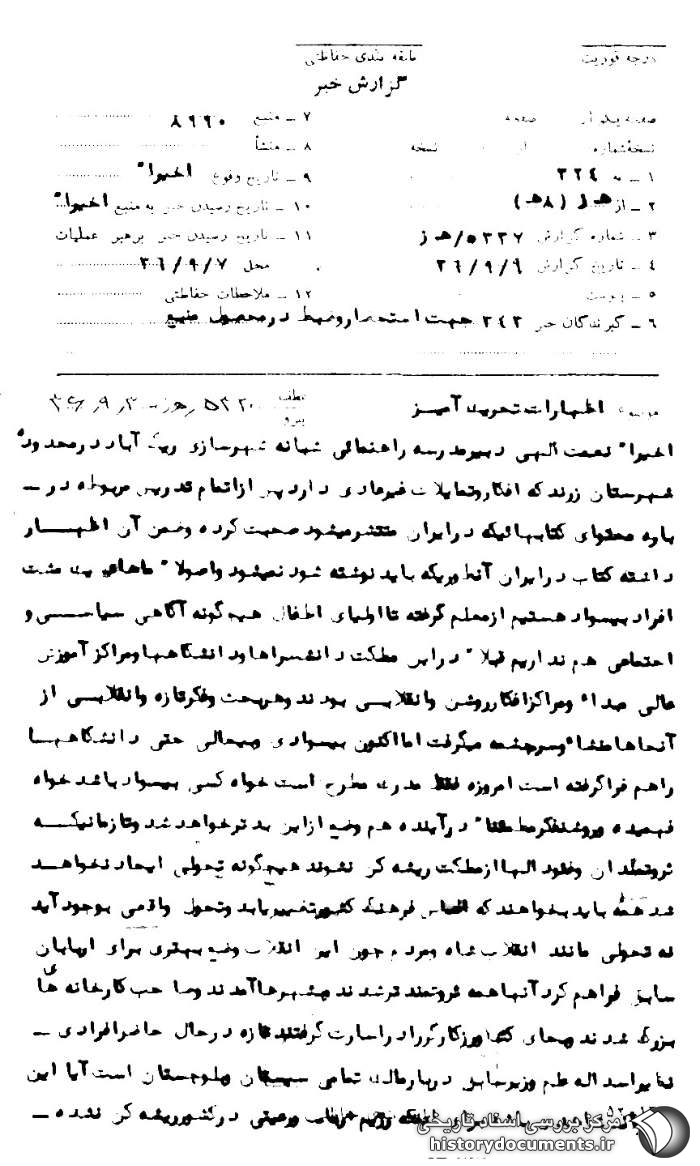 درجه فوریت
طبقه بندی حفاظتی
گزارش خبر
صفحه یک از صفحه
نسخه‌شماره از نسخه
۱ ـ به ۳۲۴
۲ ـ از هـ ز (۸ هـ)
۳ ـ شماره گزارش ۵۳۳۷/هـ ز
۴ ـ تاریخ گزارش ۳۶/۹/۹
۵ ـ پیوست
۶ ـ گیرندگان خبر ۳۴۳ جهت استحضار و ضبط در محصول منبع
۷ ـ منبع ۸۹۹۰
۸ ـ منشأ
۹ ـ تاریخ وقوع اخیراً
۱۰ ـ تاریخ رسیدن خبر به منبع اخیراً
۱۱ ـ تاریخ رسیدن خبر برهبر عملیات
محل ۳۶/۹/۷
۱۲ ـ ملاحظات حفاظتی
موضوع اظهارات تحریک آمیز
عطف
پیرو ۵۳۲۰/هـ ز ـ ۳۶/۹/۳
اخیراً نعمت الهی دبیر مدرسه راهنمائی شبانه شهرسازی ریگ آباد در محدوده
شهرستان زرند که افکار و تمایلات غیرعادی دارد پس از اتمام تدریس مربوطه در ـ
باره محتوای کتابهائیکه در ایران منتشر میشود صحبت کرده و ضمن آن اظهار
داشته کتاب در ایران آنطوریکه باید نوشته شود نمیشود و اصولاً ماهای یک مشت
افراد بیسواد هستیم از معلم گرفته تا اولیای اطفال هیچگونه آگاهی سیاسی و
اجتماعی هم نداریم قبلاً در این مملکت دانشسراها و دانشگاهها و مراکز آموزش
عالی مبداء و مراکز افکار روشن و انقلابی بودند و هر بحث و فکر تازه و انقلابی از
آنجاها منشاء و سرچشمه میگرفت اما اکنون بیسوادی و بیحالی حتی دانشگاهها
را هم فرا گرفته است امروزه فقط مدرک مطرح است خواه کسی بیسواد باشد خواه
فهمیده و روشنفکر مطمئناً در آینده هم وضع از این بدتر خواهد شد و تا زمانیکه
ثروتمندان و فئودالها از مملکت ریشه کن نشوند هیچگونه تحولی ایجاد نخواهد
شد همه باید بخواهند که اساس فرهنگ کشور تغییر یابد و تحول واقعی بوجود آید
نه تحولی مانند انقلاب شاه و مردم چون این انقلاب وضع بهتری برای اربابان
سابق فراهم کرد آنها همه ثروتمندتر شدند بشهرها آمدند و صاحب کارخانه های
بزرگ شدند و بجای کشاورز کارگر را در اسارت گرفتند تازه در حال حاضر افرادی ـ
نظیر اسداله علم وزیر سابق دربار مالک تمامی سیستان و بلوچستان است آیا این
رژیم ارباب و رعیتی در کشور ریشه کن نشده ـ
مرکز بررسی اسناد تاریخی
historydocuments.ir